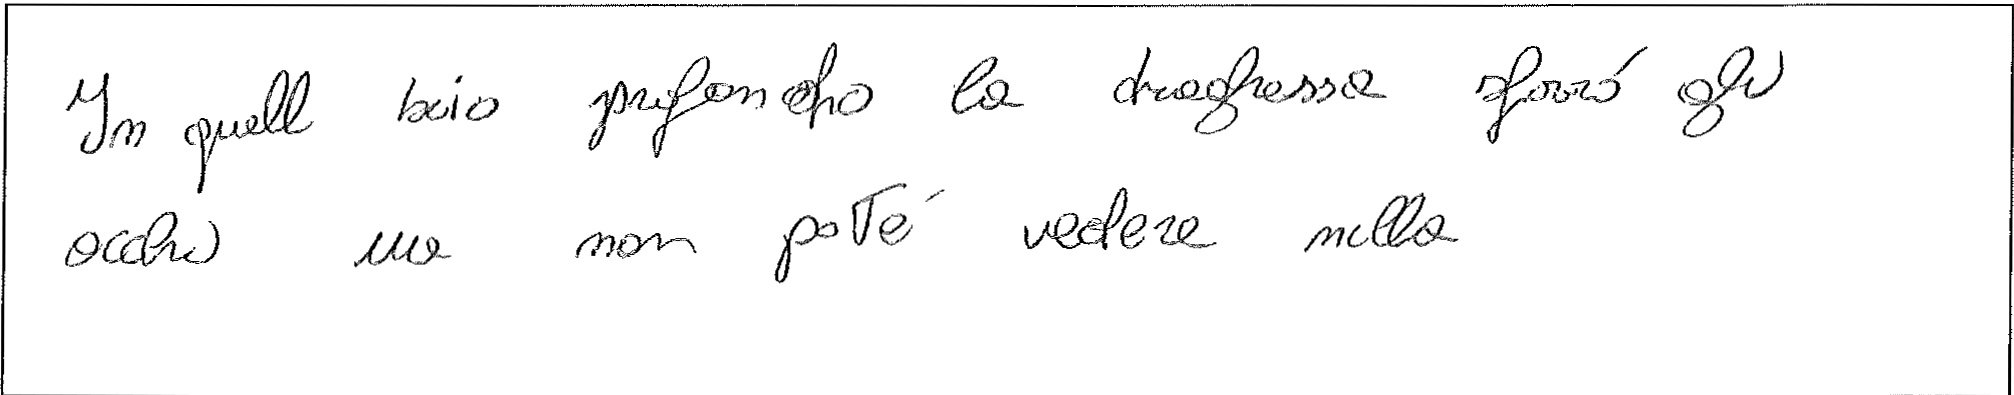 In quell buio profondo la draghessa sforzó gli
occhi ma non poté vedere nulla